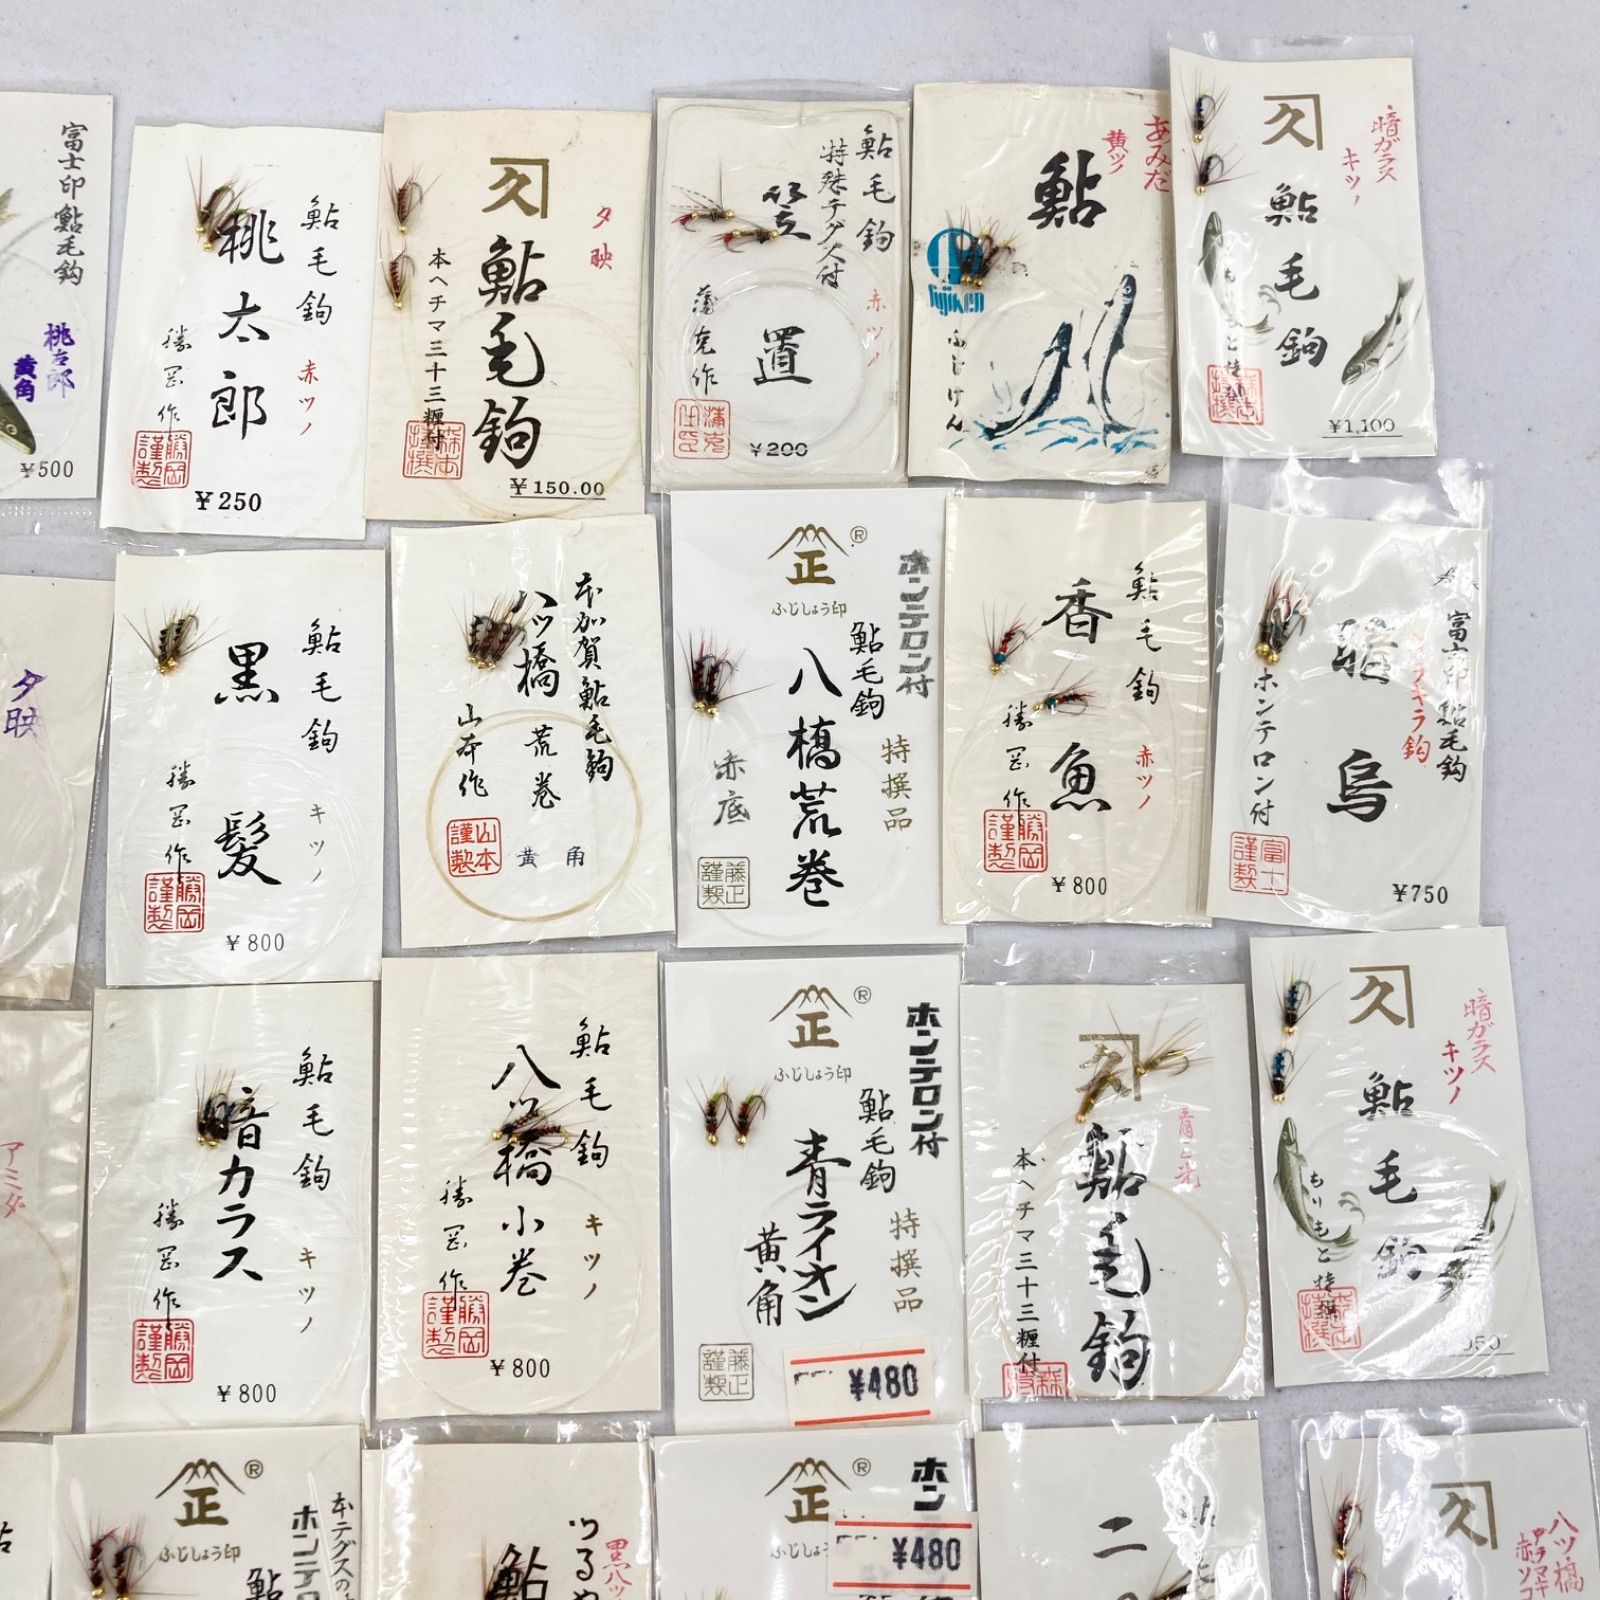 富士印鮎毛鈎
桃太郎
黄角
¥500
鮎毛鈎
赤ツノ
桃太郎
勝岡作
勝岡謹製
¥250
久
夕映
鮎毛鈎
本ヘチマ三十三糎付
森本特撰
¥150.00
鮎毛鈎
特殊テグス付
赤ツノ
笠置
蒲克作
¥200
あみだ
黄ツノ
鮎
fujiken
ふじけん
久
暗ガラス
キツノ
鮎毛鈎
もりもと
¥1,100
夕映
鮎毛鈎
キツノ
黒髪
勝岡作
勝岡謹製
¥800
本加賀鮎毛鈎
八ツ橋荒巻
山本作
山本謹製
黄角
正®
ふじしょう印
ホンテロン付
鮎毛鈎
八橋荒巻
特撰品
赤底
藤正謹製
鮎毛鈎
赤ツノ
香魚
勝岡作
勝岡謹製
¥800
富士印鮎毛鈎
暗烏
ホンテロン付
富士謹製
¥750
アミダ
鮎毛鈎
キツノ
暗カラス
勝岡作
勝岡謹製
¥800
鮎毛鈎
キツノ
八ツ橋小巻
勝岡作
勝岡謹製
¥800
正®
ふじしょう印
ホンテロン付
鮎毛鈎
青ライオン
黄角
特撰品
藤正謹製
¥480
鮎毛鈎
本ヘチマ三十三糎付
久
暗ガラス
キツノ
鮎毛鈎
もりもと
正®
ふじしょう印
本テグスの
ホンテロン
鮎
つるや
黒八ツ
鮎
正®
ホン
¥480
二
久
八ツ橋